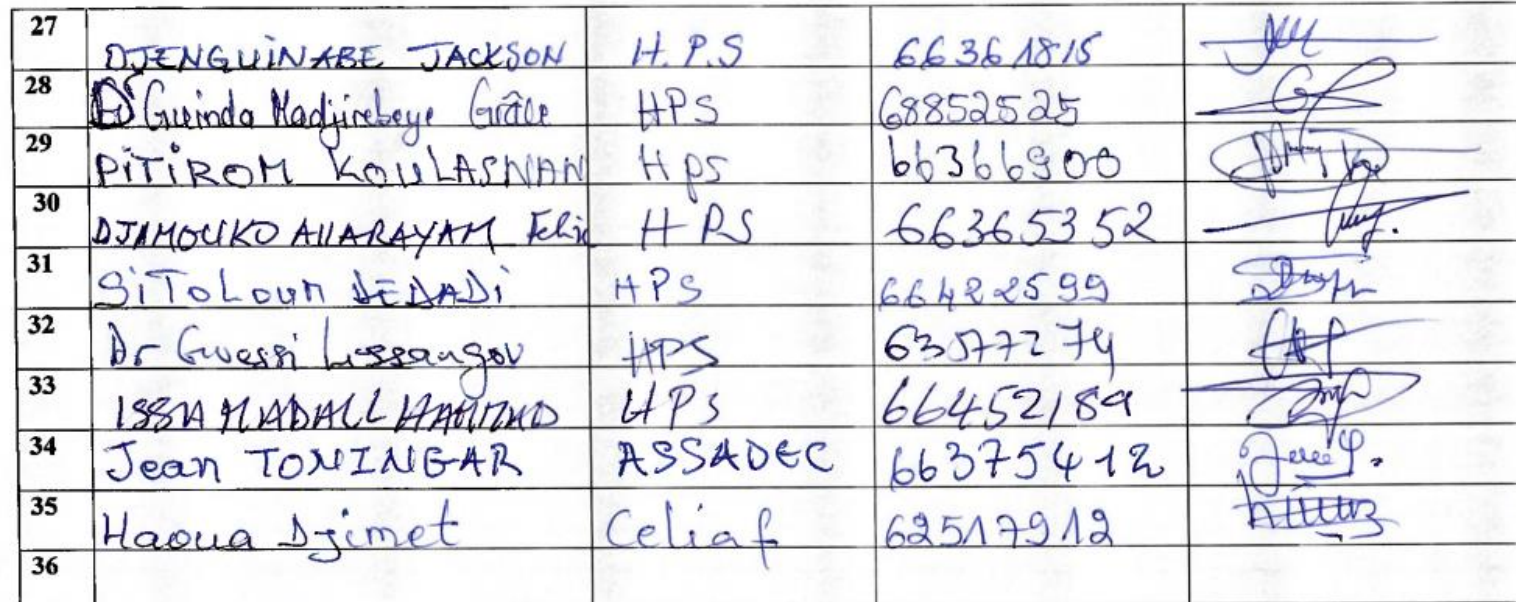 27 DJENGUINABE JACKSON H.P.S 66361815
28 Dr Guinda Madjirebaye Grâce HPS 68852525
29 PITIROM KOULASNAN Hps 66366900
30 DJAMOUKO ALLARAYAM Felix HPS 66365352
31 SITOLOUM DEDADI HPS 66422599
32 Dr Guessi Lessangou HPS 63577274
33 ISSA MADALL HAMID HPS 66452189
34 Jean TONINGAR ASSADEC 66375412
35 Haoua Djimet Celiaf 62517912
36